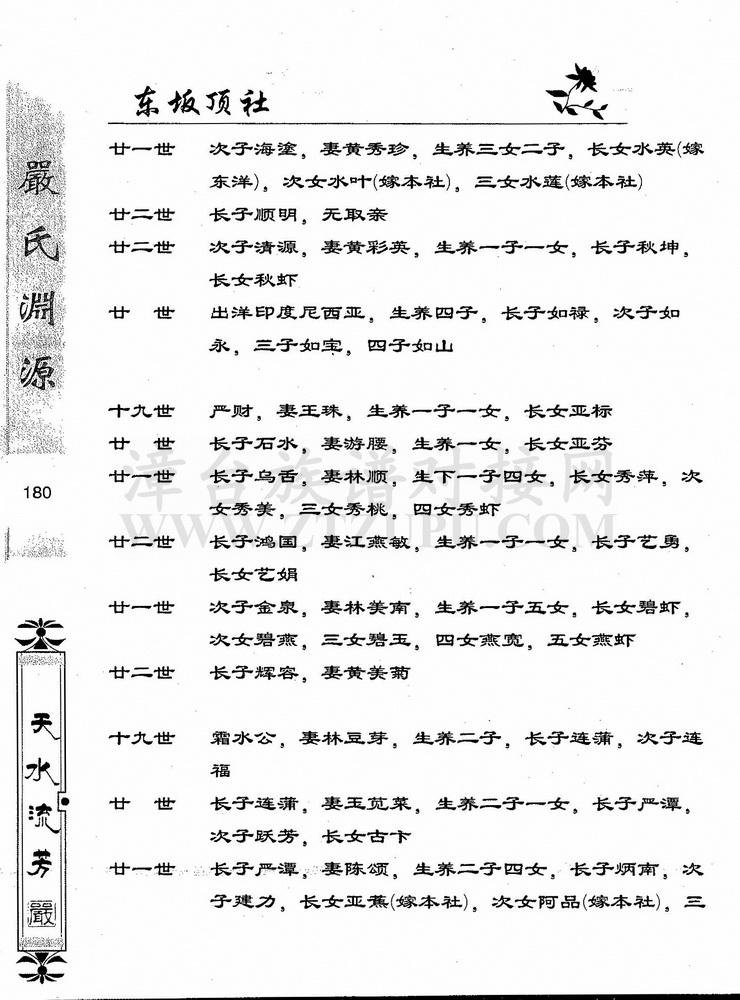 东坂顶社
廿一世 次子海塗，妻黄秀珍，生养三女二子，长女水英(嫁
东洋)，次女水叶(嫁本社)，三女水莲(嫁本社)
廿二世 长子顺明，无取亲
廿二世 次子清源，妻黄彩英，生养一子一女，长子秋坤，
长女秋虾
廿 世 出洋印度尼西亚，生养四子，长子如禄，次子如
永，三子如宝，四子如山
十九世 严财，妻王珠，生养一子一女，长女亚标
廿 世 长子石水，妻游腰，生养一女，长女亚芬
廿一世 长子乌舌，妻林顺，生下一子四女，长女秀萍，次
女秀美，三女秀桃，四女秀虾
廿二世 长子鸿国，妻江燕敏，生养一子一女，长子艺勇，
长女艺娟
廿一世 次子金泉，妻林美南，生养一子五女，长女碧虾，
次女碧燕，三女碧玉，四女燕宽，五女燕虾
廿二世 长子辉容，妻黄美菊
十九世 霜水公，妻林豆芽，生养二子，长子连蒲，次子连
福
廿 世 长子连蒲，妻玉苋菜，生养二子一女，长子严潭，
次子跃芳，长女古卞
廿一世 长子严潭，妻陈颂，生养二子四女，长子炳南，次
子建力，长女亚蕉(嫁本社)，次女阿品(嫁本社)，三
嚴氏淵源
180
天水流芳
嚴
漳台族谱对接网
WWW.ZTZUPU.COM